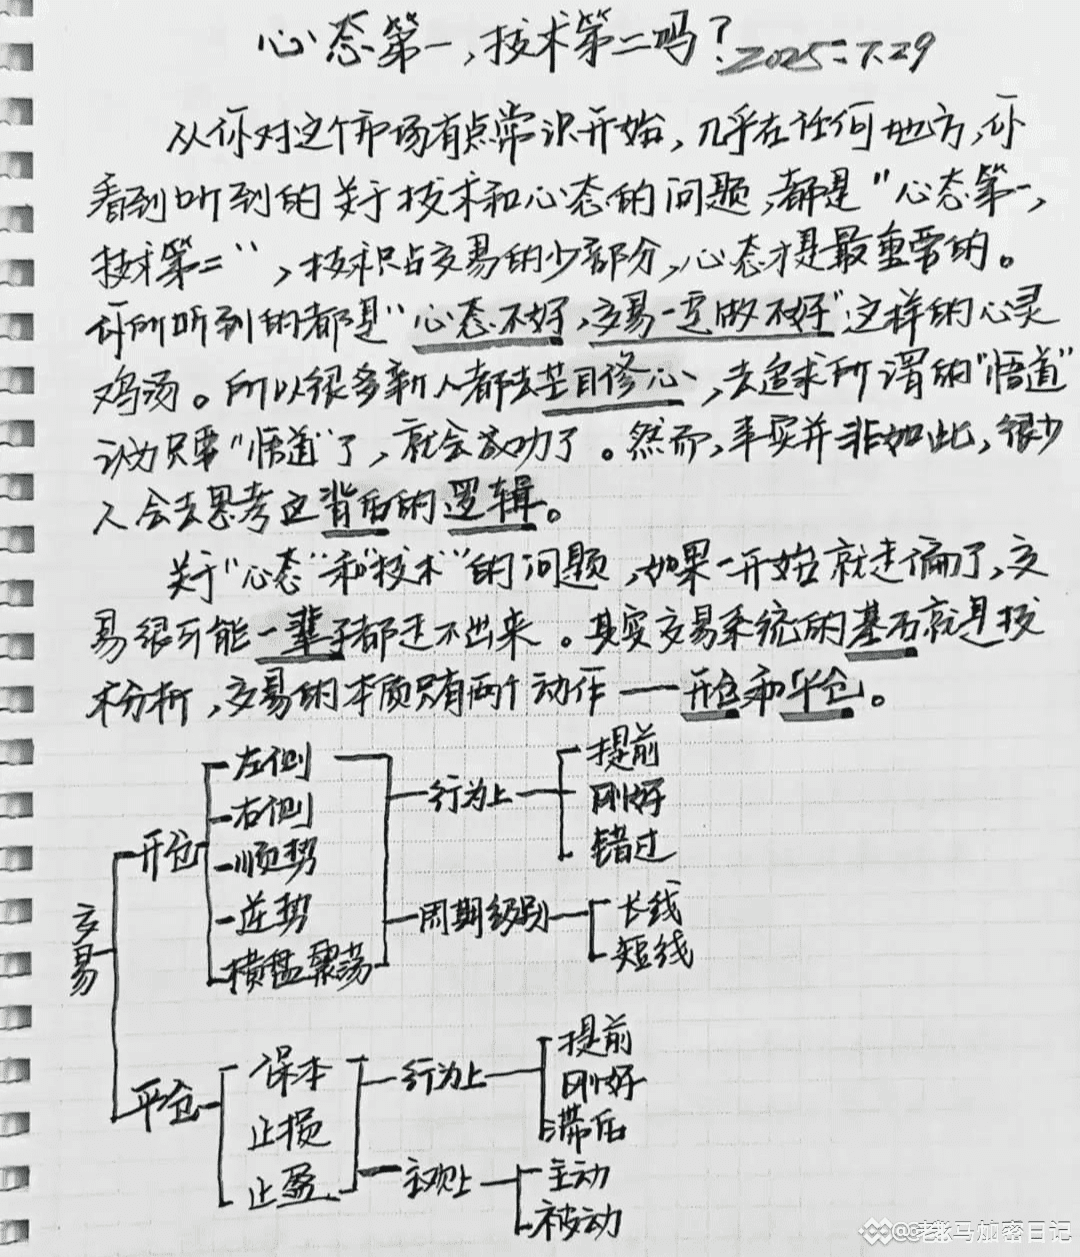 心态第一,技术第二吗? 2025.7.29
从你对这个市场有点常识开始,几乎在任何地方,你
看到听到的关于技术和心态的问题,都是"心态第一,
技术第二",技术只占交易的少部分,心态才是最重要的。
你所听到的都是"心态不好,交易一定做不好"这样的心灵
鸡汤。所以很多新人都去盲目修心,去追求所谓的"悟道"
认为只要"悟道"了,就会成功了。然而,事实并非如此,很少
人会去思考这背后的逻辑。
关于"心态"和"技术"的问题,如果一开始就走偏了,交
易很可能一辈子都走不出来。其实交易系统的基石就是技
术分析,交易的本质只有两个动作——开仓和平仓。
交易
开仓
左侧
右侧
顺势
逆势
横盘震荡
行为上
提前
刚好
错过
周期级别
长线
短线
平仓
保本
止损
止盈
行为上
提前
刚好
滞后
主观上
主动
被动
老张马加密日记